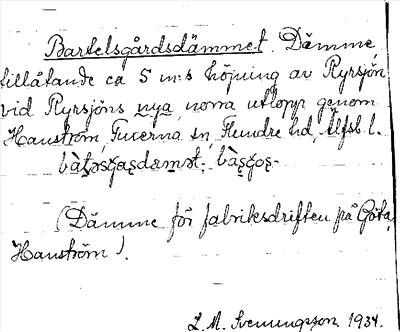 Bartelsgårdsdämmet. Dämme
tillåtande ca 5 m:s höjning av Ryrsjön
vid Ryrsjöns nya norra utlopp genom
Hanström, Fucerna sn, Flundre hd, Älfsb. l.
(Dämme för fabriksdriften på Göta,
Hanström).
L. M. Svenungsson 1934.